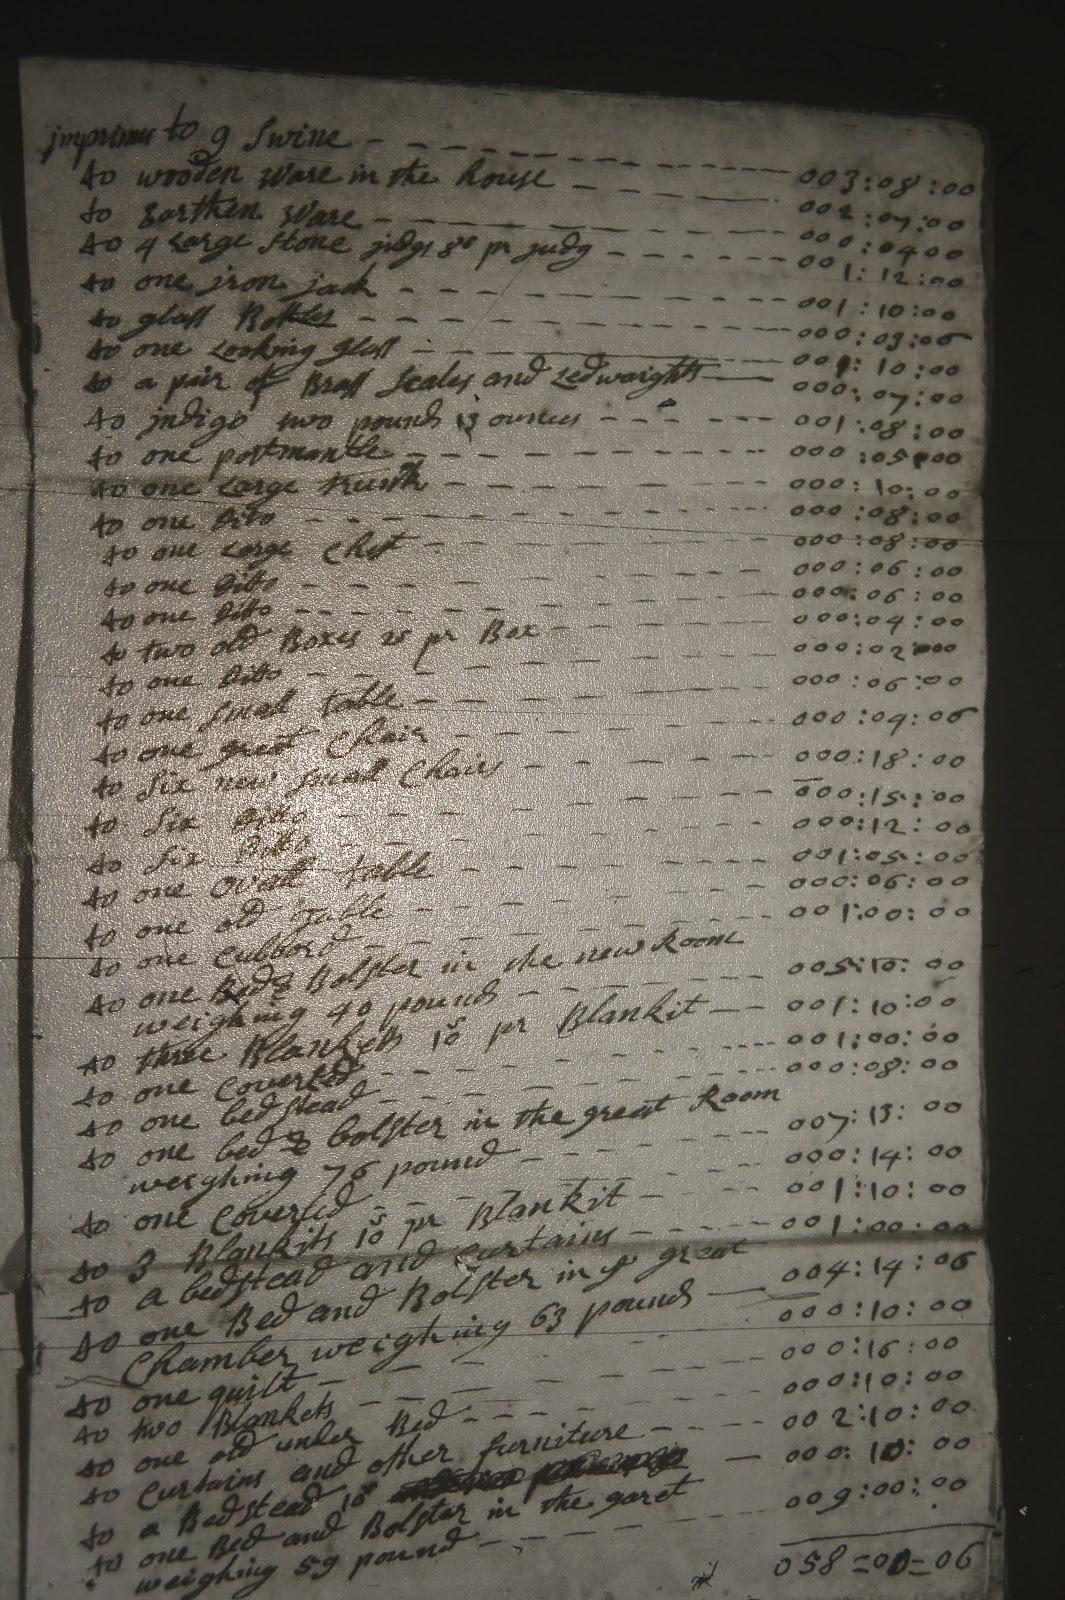 imprimus to 9 Swine - - - - - - - - 003:08:00
to wooden Ware in the house - - - - 002:07:00
to Earthen Ware - - - - - - 000:04:00
to 4 Large Stone judgs 8s pr judg - - - - 001:12:00
to one jron jack - - - - - - 001:10:00
to glass Bottles - - - - - - 000:03:06
to one Looking glass - - - - - 001:10:00
to a pair of Brass Scales and Ledwaights - - 000:07:00
to jndigo two pounds 13 ounces - - - - 001:08:00
to one portmantle - - - - - - 000:05:00
to one Large trunk - - - - - 000:10:00
to one Ditto - - - - - - 000:08:00
to one Large Chest - - - - - 000:08:00
to one Ditto - - - - - - 000:06:00
to one Ditto - - - - - - 000:06:00
to two old Boxes 2s pr Box - - - - 000:04:00
to one Ditto - - - - - - 000:02:00
to one small table - - - - - 000:06:00
to one great Chair - - - - - 000:04:06
to Six new small Chairs - - - - 000:18:00
to Six Ditto - - - - - - 000:15:00
to Six Ditto - - - - - - 000:12:00
to one ovall table - - - - - 001:05:00
to one old table - - - - - 000:06:00
to one Cubbord - - - - - - 001:00:00
to one Bed & Bolster in the new Room
weighing 40 pounds - - - - - 005:10:00
to three Blankets 10s pr Blankit - - 001:10:00
to one Coverled - - - - - - 001:00:00
to one bedstead - - - - - - 000:08:00
to one bed & bolster in the great Room
weighing 76 pound - - - - - 007:13:00
to one Coverled - - - - - - 000:14:00
to 3 Blankits 10s pr Blankit - - - 001:10:00
to a bedstead and Curtains - - - - 001:00:00
to one Bed and Bolster in ye great
Chamber weighing 63 pounds - - 004:14:06
to one quilt - - - - - - 000:10:00
to two Blankets - - - - - 000:16:00
to one old under Bed - - - - - 000:10:00
to Curtains and other furniture - - - 002:10:00
to a Bedstead 10s - 000:10:00
to one Bed and Bolster in the garet
weighing 59 pound - - - - 009:00:00
058=00=06